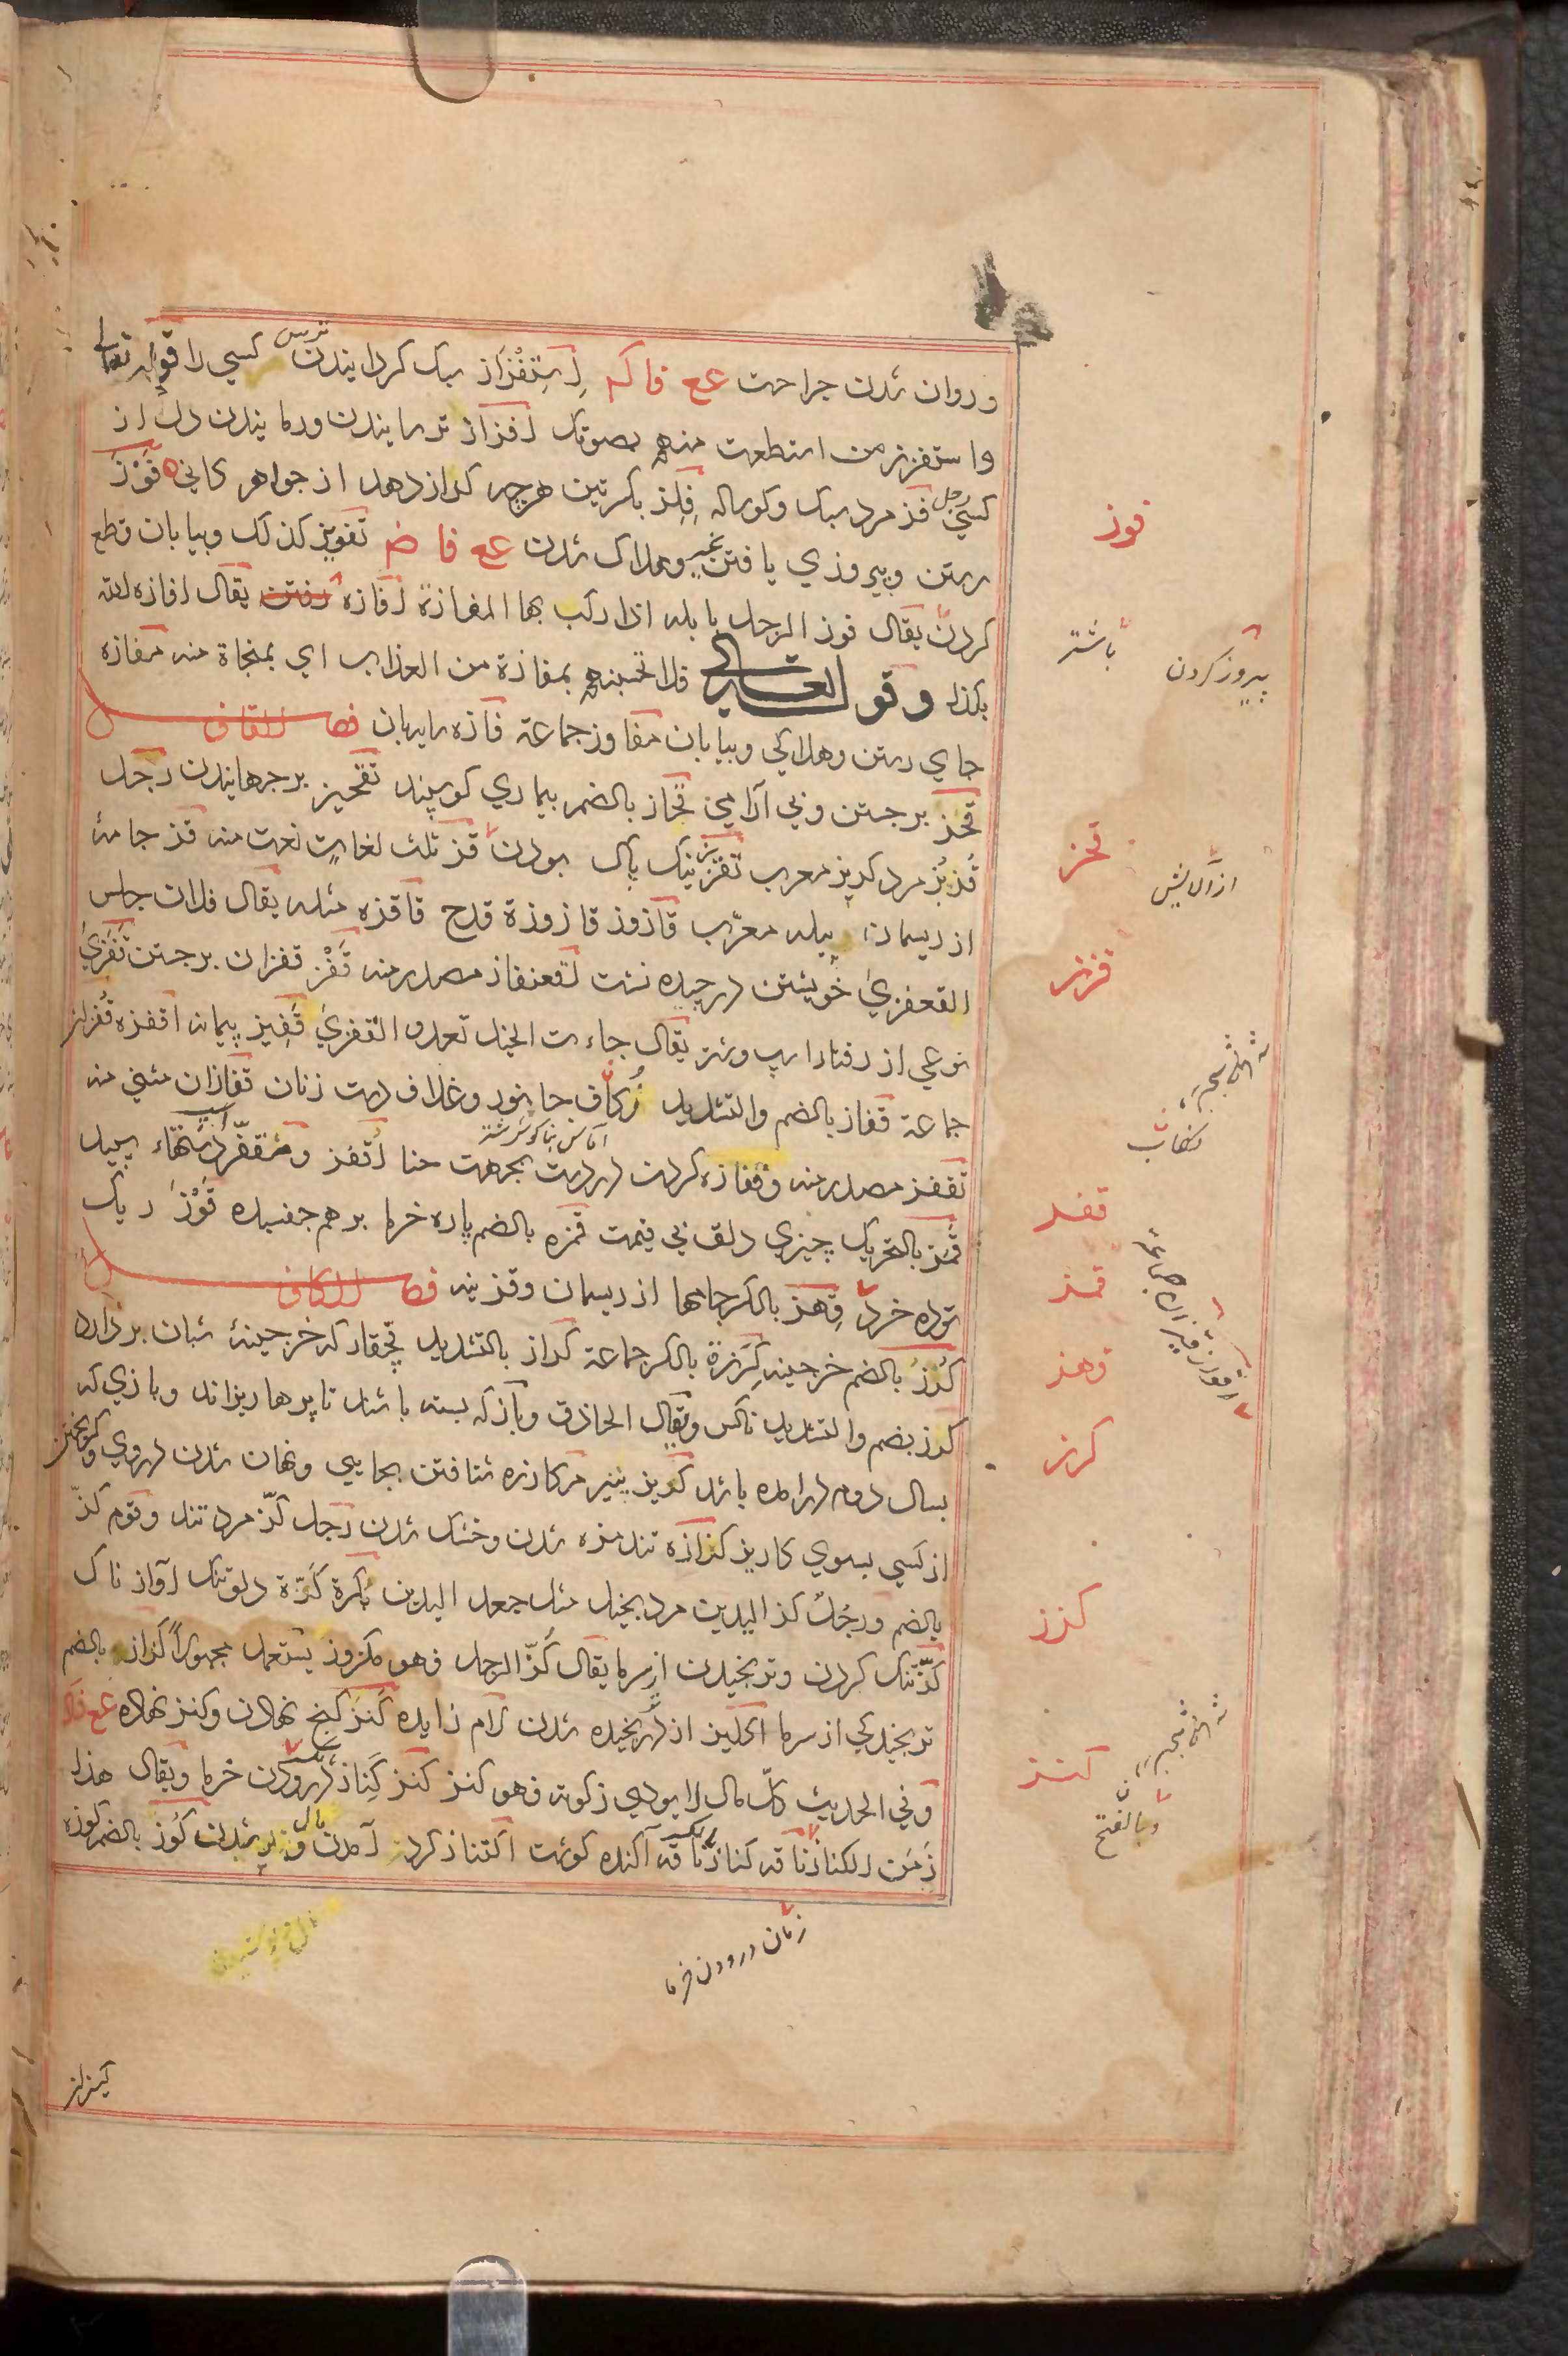 و روان شدن جراحت عع فا کم اِستِفْزاز سبک کردایندن ترس کسی را قوله تعالی
واستفزز من استطعت منهم بصوتک افزاز ترسایندن ورمایندن دل از
کسی رجل فز مرد سبک وکوساله فِلِز بکسرتین هرچه کداز دهد از جواهر کانی فَوْز
رستن وپیروزی یافتن بخیر وهلاک شدن عع فا ض تفویز کذلک وبیابان قطع
کردن یقال فوز الرجل بابله اذا رکب بها المفازة افازه یقال افازه الله
بکذا وقوله تعالی فلا تحسبنهم بمفازة من العذاب ای بمنجاة منه مفازه
جای رستن وهلاکی وبیابان مفاوز جماعة فازه سایبان فصل القاف
قحز برجستن وبی آرامی قُحاز بالضم بیماری کوسپند تقحیز برجهایندن رجل
قُربُز مرد کربز معرب تقزز نیک پاک بودن قز ثلث لغات نعت منه قز جامه
از ریسمان پیله معرّب قازوز قازوزة قدح قاقزه مثله یقال فلان جلس
القعفزی خویشتن درچیده نشست اقعنفاز مصدر منه قَفْز قفزان برجستن تَقَفزی
نوعی از رفتار اسپ وشتر یقال جاءت الخیل تعدو القفزی قَفِیز پیمانه اقفزه قُفزان
جماعة قفاز بالضم والتشدید جانور وغلاف دست زنان قفازان مثنی منه
تقفز مصدر منه وقفازه کردن در دست بجهت حنا اقفز ومتقفّز اسپ دستهاء سپید
قَمَز بالتحریک چیزی دلق بی قیمت قمزه بالضم پاره خرما برهم جفسیده قَوْز ریک
توده خرد قِهز بالکسر جامها از ریسمان وقزینه فصل الکاف
کُرْز بالضم خرجینه کِرَزة بالکسر جماعة کراز بالتشدید قچقار که خرجینهٔ شبان بردارد
کرز بضم والتشدید ناکس ویقال الحاذق وباز که بسته باشد تا پرها ریزاند وبازی که
بسال دوم درآمده باشد کریز پنیر مکارزه شتافتن بجایی ونهان شدن دروی وکریختن
از کسی بسوی کاریز کزازه تندمزه شدن وخشک شدن رجل کزّ مرد تند وقوم کزّ
بالضم ورجُل کز الیدین مرد بخیل مثل جعد الیدین بکرة کزّة دلو تنک آواز ناک
کزّ تنک کردن وترنجیدن از سرما یقال کُزّ الرجل فهو مکزوز یستعمل مجهولاً کزاز بالضم
ترنجیدکی از سرما اکلیزاز درترنجیده شدن لام زایده کَنز کنج نهادن وکنز نهاده عع فا
وفی الحدیث کلّ مال لا یودی زکوته فهو کنز کنز کِناز درودن خرما ویقال هذا
زمَن الکناز ناقه کناز ناقه آکنده کوشت اکتناز کرد آمدن وپر شدن کُوز بالضم کوزه
فوز
باشتر
پیروز کردن
قحز
از آلایش
قزز
قفز
قمز
قهز
کرز
کزز
کنز
وبالفتح
زمان درودن خرما
کیزان